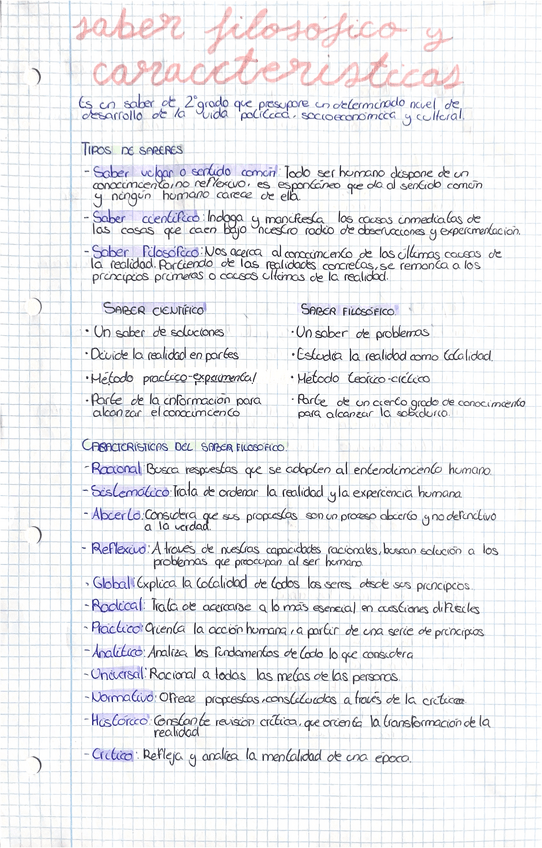 saber filosófico y
caracteristicas
Es un saber de 2º grado que presupone un determinado nivel de
desarrollo de la vida política, socioeconómica y cultural.
TIPOS DE SABERES
- Saber vulgar o sentido común: Todo ser humano dispone de un
conocimiento, no reflexivo, es espontáneo que da el sentido común
y ningún humano carece de ella.
- Saber científico: Indaga y manifiesta las causas inmediatas de
las cosas que caen bajo nuestro radio de observaciones y experimentación.
- Saber Filosófico: Nos acerca al conocimiento de las últimas causas de
la realidad. Partiendo de las realidades concretas, se remonta a los
principios primeros o causas últimas de la realidad.
SABER CIENTÍFICO SABER FILOSÓFICO
· Un saber de soluciones · Un saber de problemas
· Divide la realidad en partes · Estudia la realidad como totalidad.
· Método practico-experimental · Método teórico-crítico
· Parte de la información para · Parte de un cierto grado de conocimiento
alcanzar el conocimiento para alcanzar la sabiduría.
CARACTERISTICAS DEL SABER FILOSOFICO:
- Racional: Busca respuestas que se adapten al entendimiento humano.
- Sistemático: Trata de ordenar la realidad y la experiencia humana.
- Abierto: Considera que sus propuestas son un proceso abierto y no definitivo
a la verdad.
- Reflexivo: A través de nuestras capacidades racionales, buscan solución a los
problemas que preocupan al ser humano.
· Global: Explica la totalidad de todos los seres desde sus principios.
- Radical: Trata de acercarse a lo más esencial en cuestiones difíciles
- Práctico: Orienta la acción humana, a partir de una serie de principios
- Analítico: Analiza los fundamentos de todo lo que considera
- Universal: Racional a todas las metas de las personas.
- Normativo: Ofrece propuestas, constituidas a través de la crítica
- Histórico: Constante revisión crítica, que orienta la transformación de la
realidad
- Crítico: Refleja y analiza la mentalidad de una época.